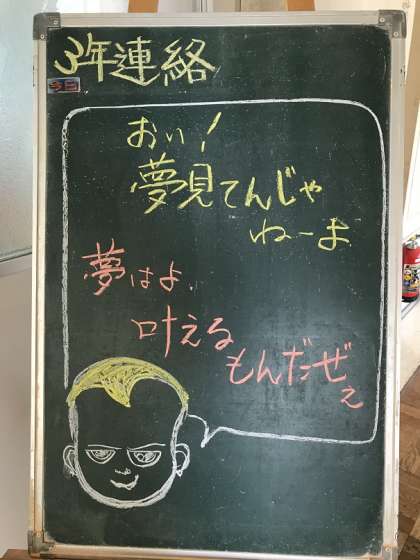 3年連絡
今日
おい！
夢見てんじゃ
ねーよ
夢はよ、
叶える
もんだぜ
ぇ